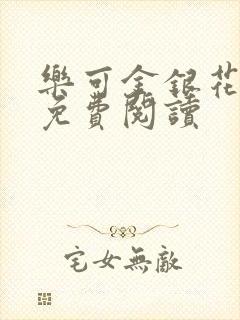 樂可金銀花
免費閱讀
宅女無敵